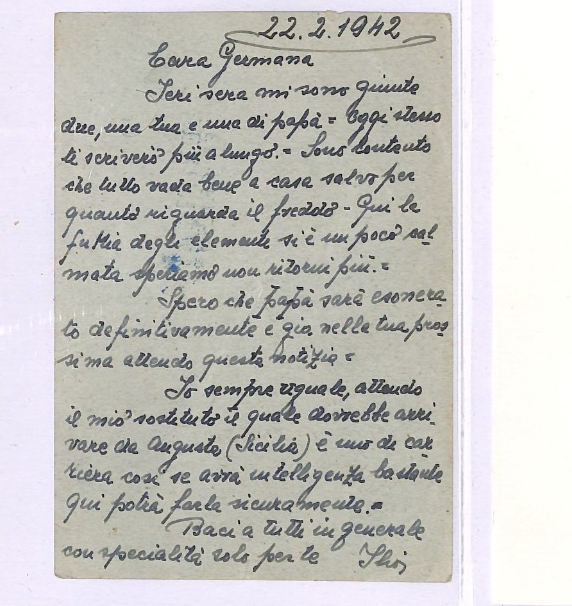 22.2.1942
Cara Germana
Ieri sera mi sono giunte
due, una tua e una di papà = Oggi stesso
ti scriverò più a lungo. = Sono contento
che tutto vada bene a casa salvo per
quanto riguarda il freddo - Qui la
furia degli elementi si è un poco cal-
mata speriamo non ritorni più. =
Spero che papà sarà esonera-
to definitivamente e già nella tua pros-
sima attendo questa notizia =
Io sempre uguale, attendo
il mio sostituto il quale dovrebbe arri-
vare da Augusta (Sicilia) è uno di car-
riera così se avrà intelligenza bastante
qui potrà farla sicuramente. =
Baci a tutti in generale
con specialità solo per te